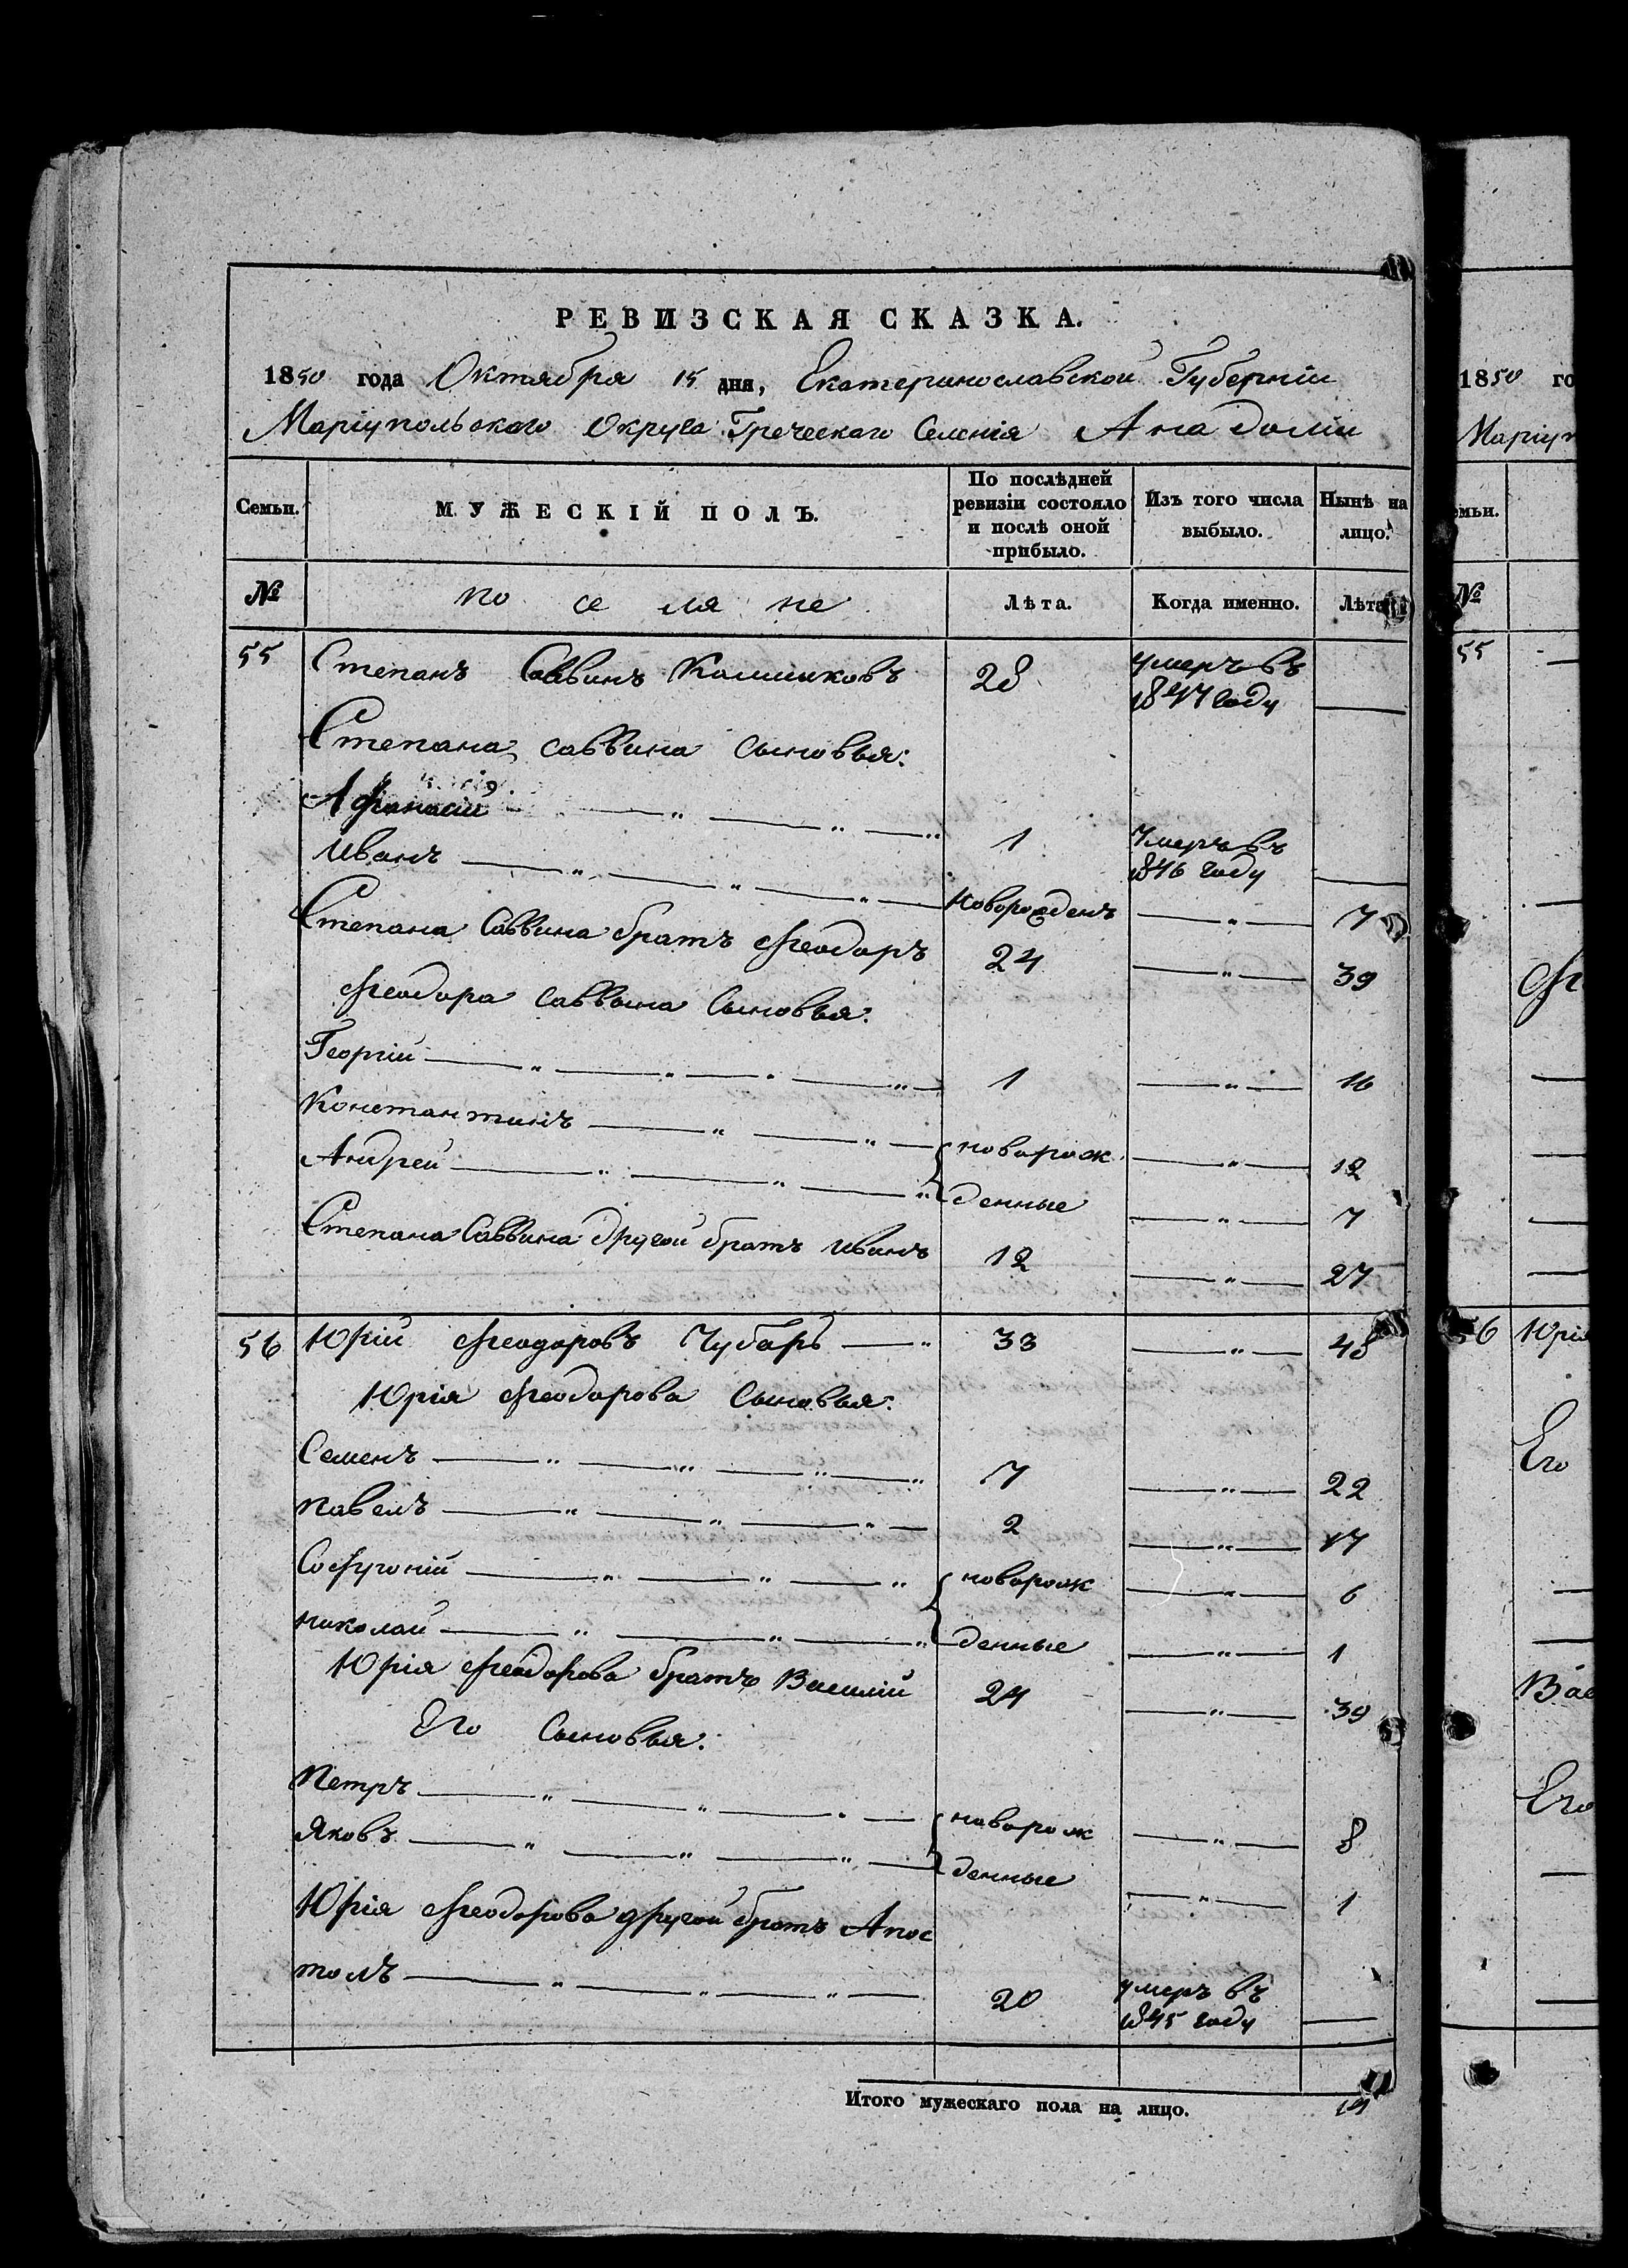 РЕВИЗСКАЯ СКАЗКА.
1850 года Октября 15 дня, Екатеринославской Губерніи
Маріупольскаго Округа Греческаго Селенія Анадоліи
Семьи. МУЖЕСКІЙ ПОЛЪ. По послѣдней ревизіи состояло и послѣ оной прибыло. Изъ того числа выбыло. Нынѣ на лицо.
№ поселяне Лѣта. Когда именно. Лѣта
55 Степанъ Саввинъ 28 умеръ въ 1847 году —
Степана Саввина сыновья:
Афанасій — " — " — " 1 Умеръ въ 1846 году —
Иванъ — " — " — " — новорожденъ — " — 7
Степана Саввина братъ Феодоръ 24 — " — 39
Феодора Саввина Сыновья:
Георгій — " — " — " — " — 1 — " — 16
Константинъ — " — " — { новорож — " — 12
Андрей — " — " — " { денные — " — 7
Степана Саввина другой братъ Иванъ 12 — " — 27
56 Юрій Феодоровъ Чубарь — " 33 — " — 48
Юрія Феодорова Сыновья:
Семенъ — " — " — " — " 7 — " — 22
Павелъ — " — " — " — 2 — " — 17
Софроній — " — " — " { новорож — " — 6
Николай — " — " — " { денные — " — 1
Юрія Феодорова братъ Василій 24 — " — 39
Его Сыновья:
Петръ — " — " — " — { новорож — " — 8
Яковъ — " — " — " — { денные — " — 1
Юрія Феодорова другой братъ Апос
толъ — " — " — " — 20 умеръ въ 1845 году —
Итого мужескаго пола на лицо. 14
1850 го
Маріуп
емьи.
№
55
Фе
56 Юрія
Его
Вас
Его